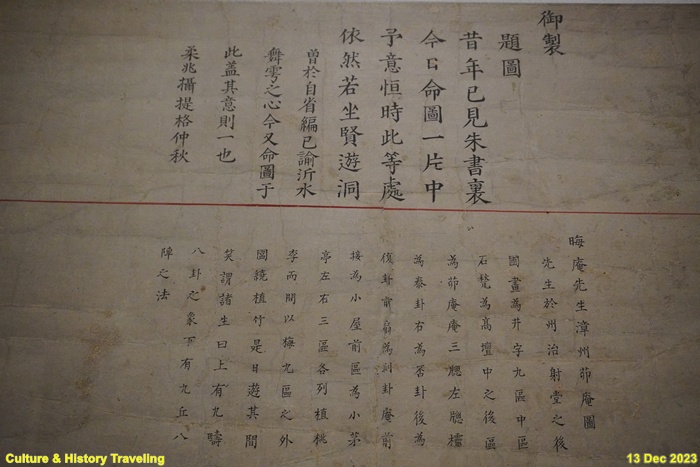 御製
題圖
昔年已見朱書裏
今日命圖一片中
予意恒時此等處
依然若坐賢遊洞
曾於自省編已諭沂水
舞雩之心今又命圖于
此盖其意則一也
柔兆攝提格仲秋
晦庵先生漳州茆庵圖
先生於州治射堂之後
圃畫為井字九區中區
石甃為高壇中之後區
為茆庵庵三牕左牕櫺
為泰卦右為否卦後為
復卦前扇為剝卦庵前
接為小屋前區為小茅
亭左右三區各列植桃
李而間以梅九區之外
圍繞植竹是日遊其間
笑謂諸生曰上有九疇
八卦之象下有九丘八
陣之法
Culture & History Traveling
13 Dec 2023